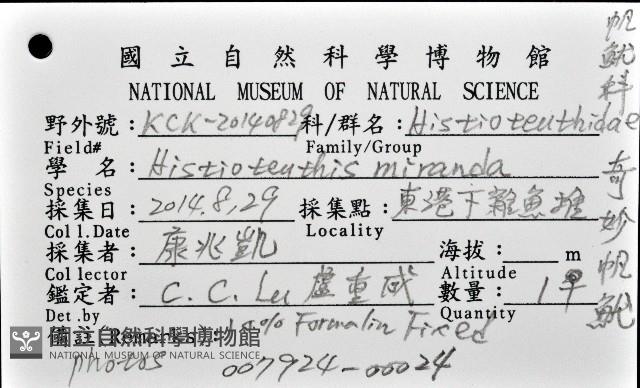 國立自然科學博物館
NATIONAL MUSEUM OF NATURAL SCIENCE
野外號：KCK-20140829 科/群名：Histioteuthidae
Field# Family/Group
學 名：Histioteuthis miranda
Species
採集日：2014.8,29 採集點：東港下雜魚堆
Coll.Date Locality
採集者：康兆凱 海拔： m
Collector Altitude
鑑定者：C. C. Lu 盧重成 數量：1
Det.by Quantity
Remarks : % Formalin Fixed
國立自然科學博物館
NATIONAL MUSEUM OF NATURAL SCIENCE
photos 007924-00024
帆魷科 奇妙帆魷